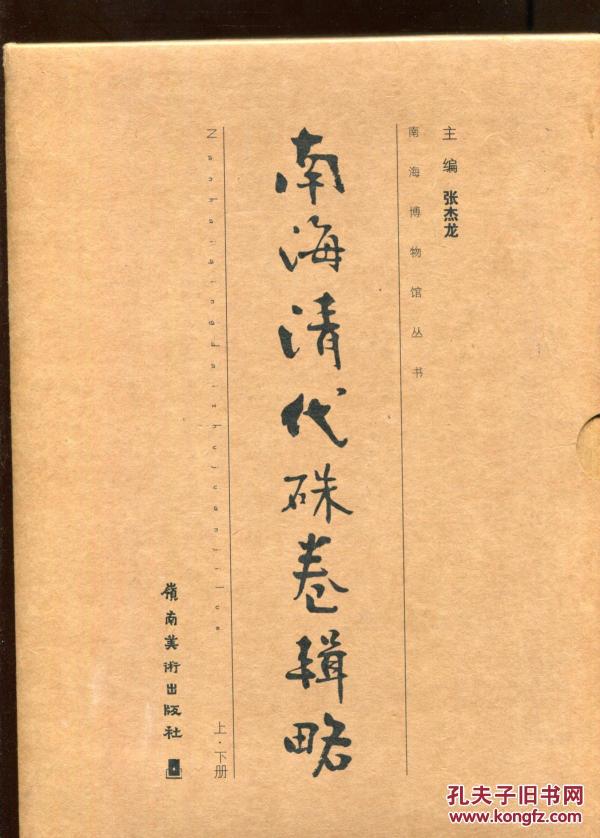 主 编 张杰龙
南海博物馆丛书
南海清代硃卷辑略
Nanhaiqingdaizhujuanjilue
上·下册
嶺南美術出版社
孔夫子旧书网
www.kongfz.com